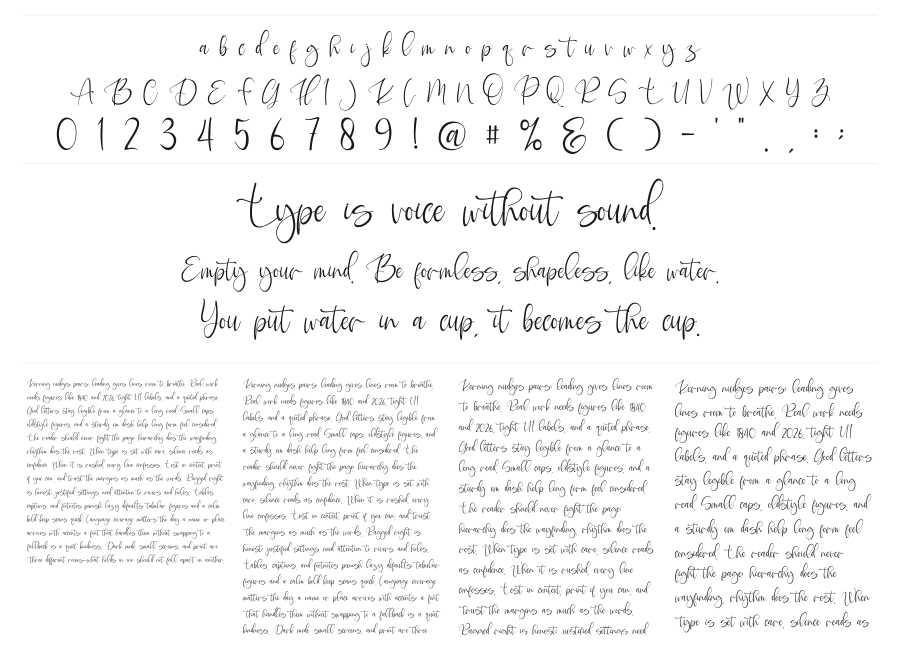 a b c d e f g h i j k l m n o p q r s t u v w x y z
A B C D E F G H I J K L M N O P Q R S T U V W X Y Z
0 1 2 3 4 5 6 7 8 9 ! @ # % & ( ) - ' " . , : ;
type is voice without sound.
Empty your mind. Be formless, shapeless, like water.
You put water in a cup, it becomes the cup.
Kerning nudges pairs; leading gives lines room to breathe. Real work
needs figures like 1840 and 2026, tight UI labels, and a quoted phrase.
Good letters stay legible from a glance to a long read. Small caps,
oldstyle figures, and a sturdy em dash help long form feel considered.
The reader should never fight the page hierarchy does the wayfinding,
rhythm does the rest. When type is set with care, silence reads as
confidence. When it is rushed, every line confesses. Test in context, print
if you can, and trust the margins as much as the words. Ragged right
is honest; justified settings need attention to rivers and holes. Tables,
captions, and footnotes punish lazy defaults; tabular figures and a calm
bold keep scans quick. Language coverage matters the day a name or place
arrives with accents a font that handles them without swapping to a
fallback is a quiet kindness. Dark mode, small screens, and print are
three different rooms—what holds in one should not fall apart in another.
Kerning nudges pairs; leading gives lines room to breathe.
Real work needs figures like 1840 and 2026, tight UI
labels, and a quoted phrase. Good letters stay legible from
a glance to a long read. Small caps, oldstyle figures, and
a sturdy em dash help long form feel considered. The
reader should never fight the page hierarchy does the
wayfinding, rhythm does the rest. When type is set with
care, silence reads as confidence. When it is rushed, every
line confesses. Test in context, print if you can, and trust
the margins as much as the words. Ragged right is
honest; justified settings need attention to rivers and holes.
Tables, captions, and footnotes punish lazy defaults; tabular
figures and a calm bold keep scans quick. Language coverage
matters the day a name or place arrives with accents a font
that handles them without swapping to a fallback is a quiet
kindness. Dark mode, small screens, and print are three
Kerning nudges pairs; leading gives lines room
to breathe. Real work needs figures like 1840
and 2026, tight UI labels, and a quoted phrase.
Good letters stay legible from a glance to a
long read. Small caps, oldstyle figures, and a
sturdy em dash help long form feel considered.
The reader should never fight the page
hierarchy does the wayfinding, rhythm does the
rest. When type is set with care, silence reads
as confidence. When it is rushed, every line
confesses. Test in context, print if you can, and
trust the margins as much as the words.
Ragged right is honest; justified settings need
Kerning nudges pairs; leading gives
lines room to breathe. Real work needs
figures like 1840 and 2026, tight UI
labels, and a quoted phrase. Good letters
stay legible from a glance to a long
read. Small caps, oldstyle figures, and
a sturdy em dash help long form feel
considered. The reader should never
fight the page hierarchy does the
wayfinding, rhythm does the rest. When
type is set with care, silence reads as